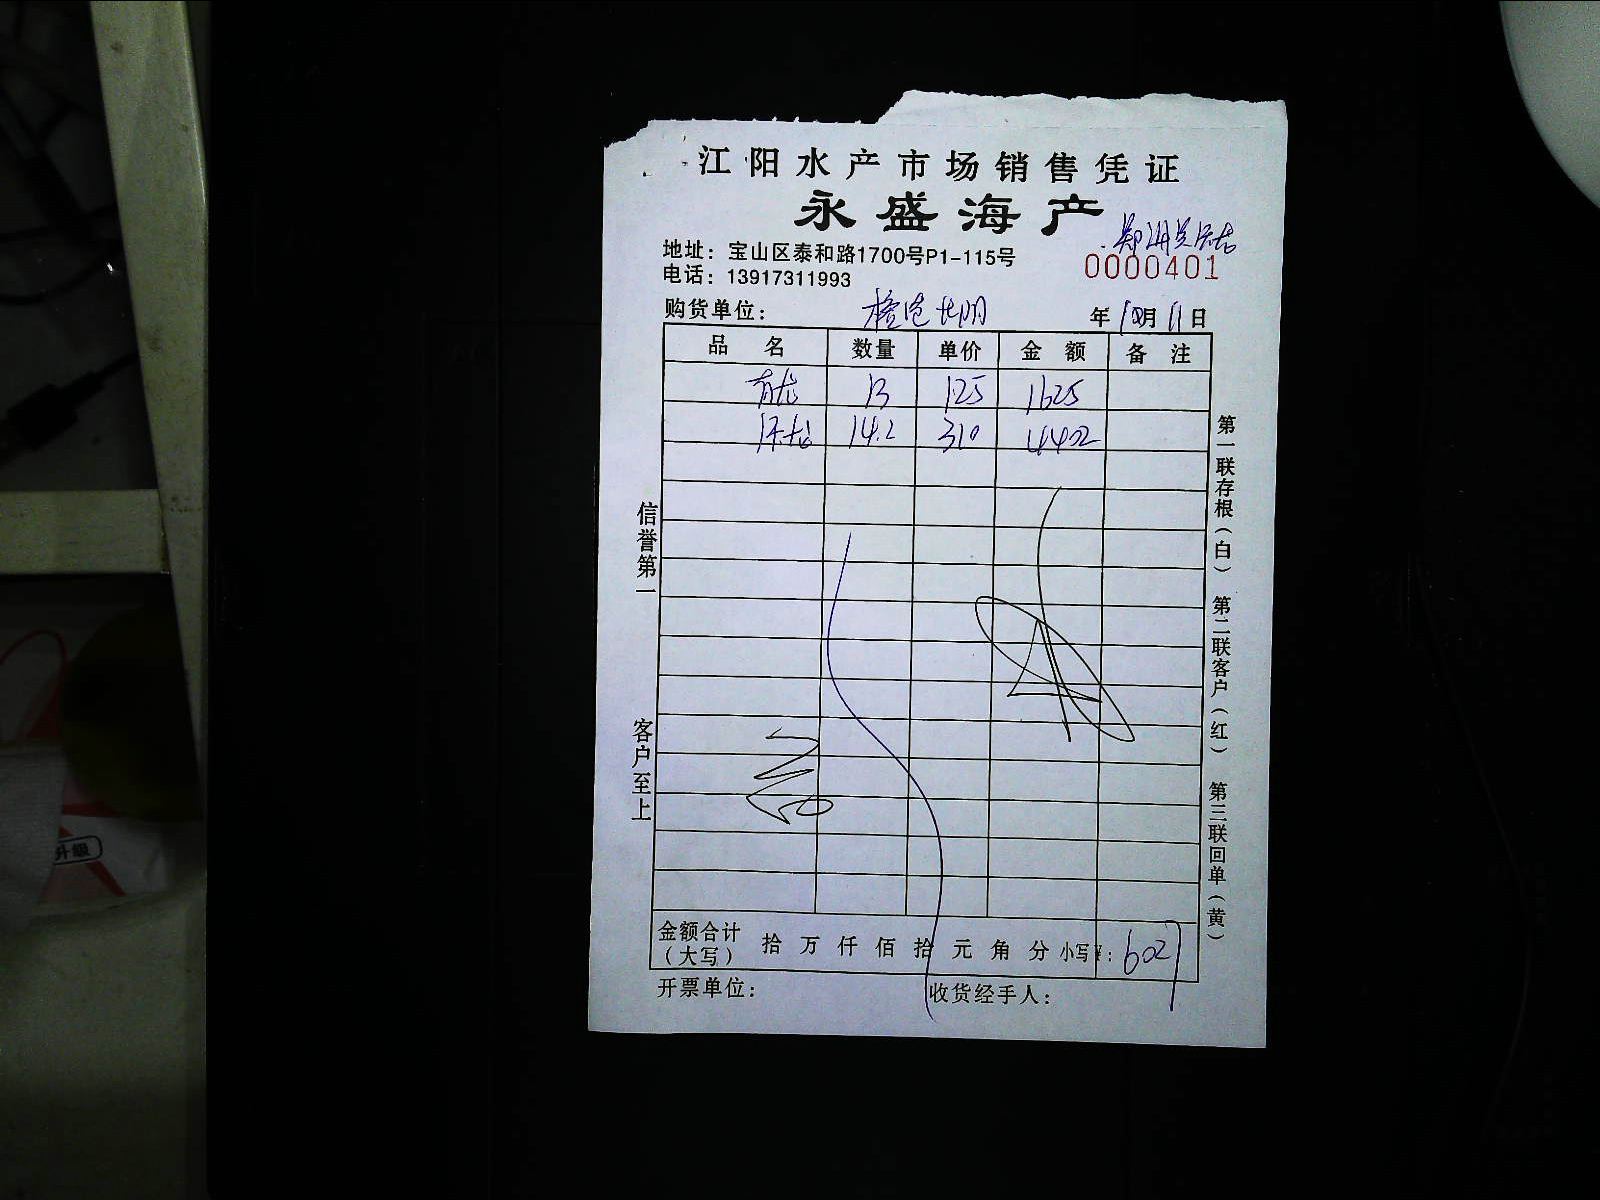 江阳水产市场销售凭证
永盛海产
地址：宝山区泰和路1700号P1-115号
0000401
电话：13917311993
购货单位： 年 10月 11日
品 名 数量 单价 金 额 备 注
青龙 13 125 1625
14.2 310 4402
信誉第一
客户至上
第一联存根（白） 第二联客户（红） 第三联回单（黄）
金额合计（大写） 拾 万 仟 佰 拾 元 角 分 小写¥：6027
开票单位： 收货经手人：
升级